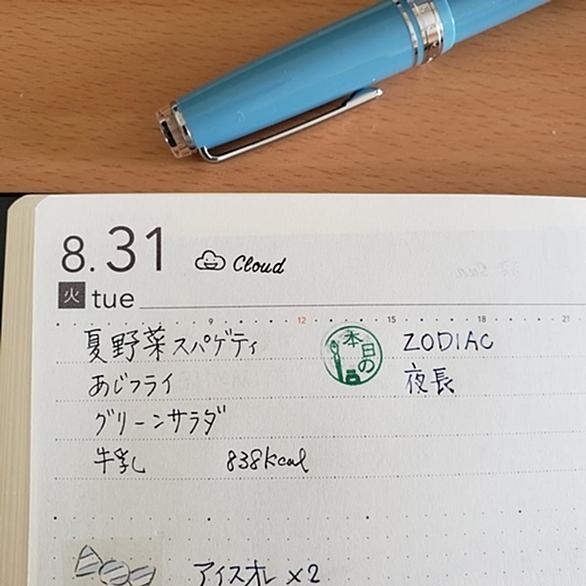 8.31
Cloud
火 tue
9 12 15 18 21
夏野菜スパゲティ
あじフライ
グリーンサラダ
牛乳 838kcal
本日の
ZODIAC
夜長
アイスオレ×2